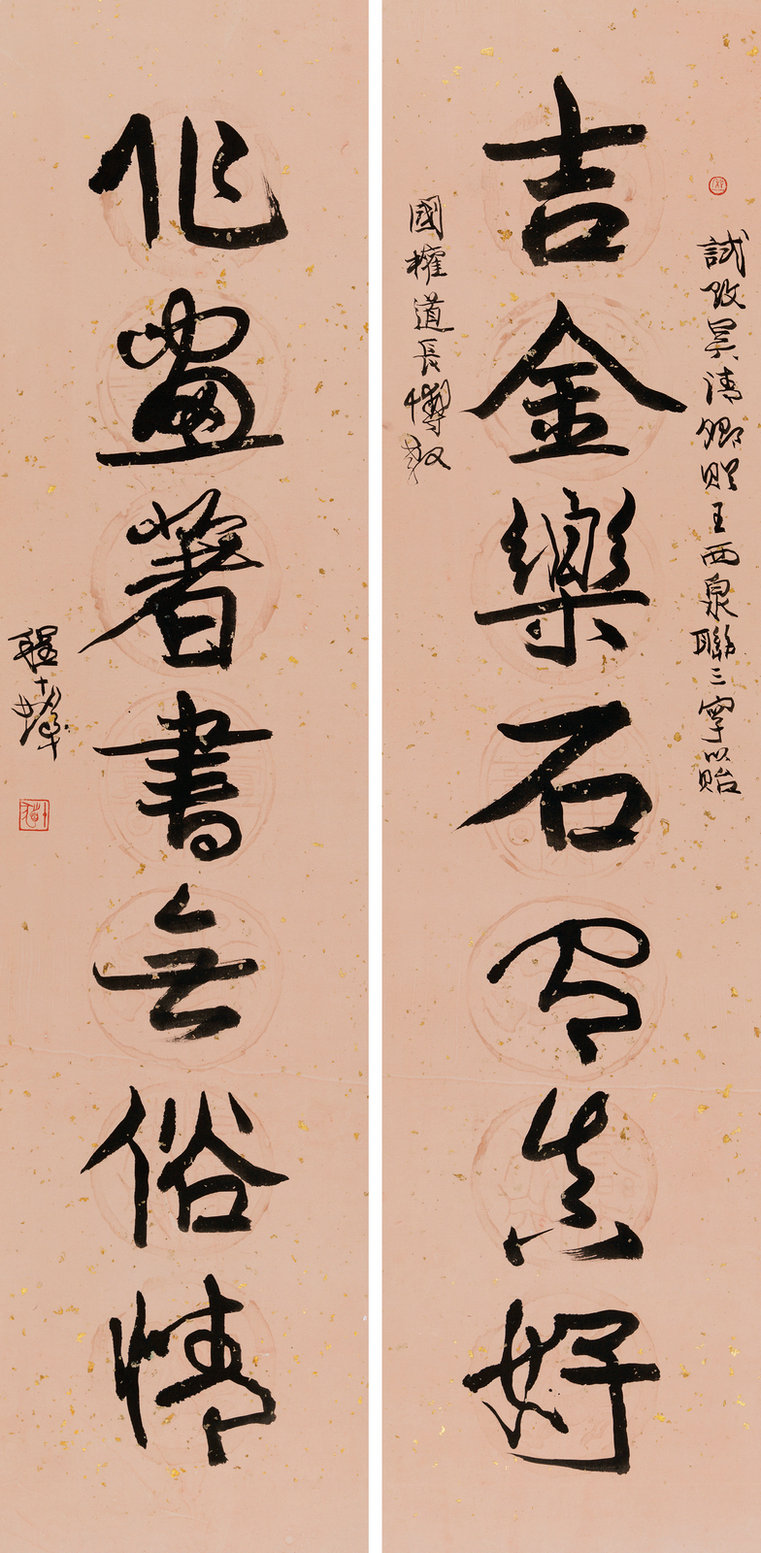 試改吳清卿贈王西泉聯三字以貽
吉金樂石有真好
國權道長愽教
作畫著書無俗情
程十髮